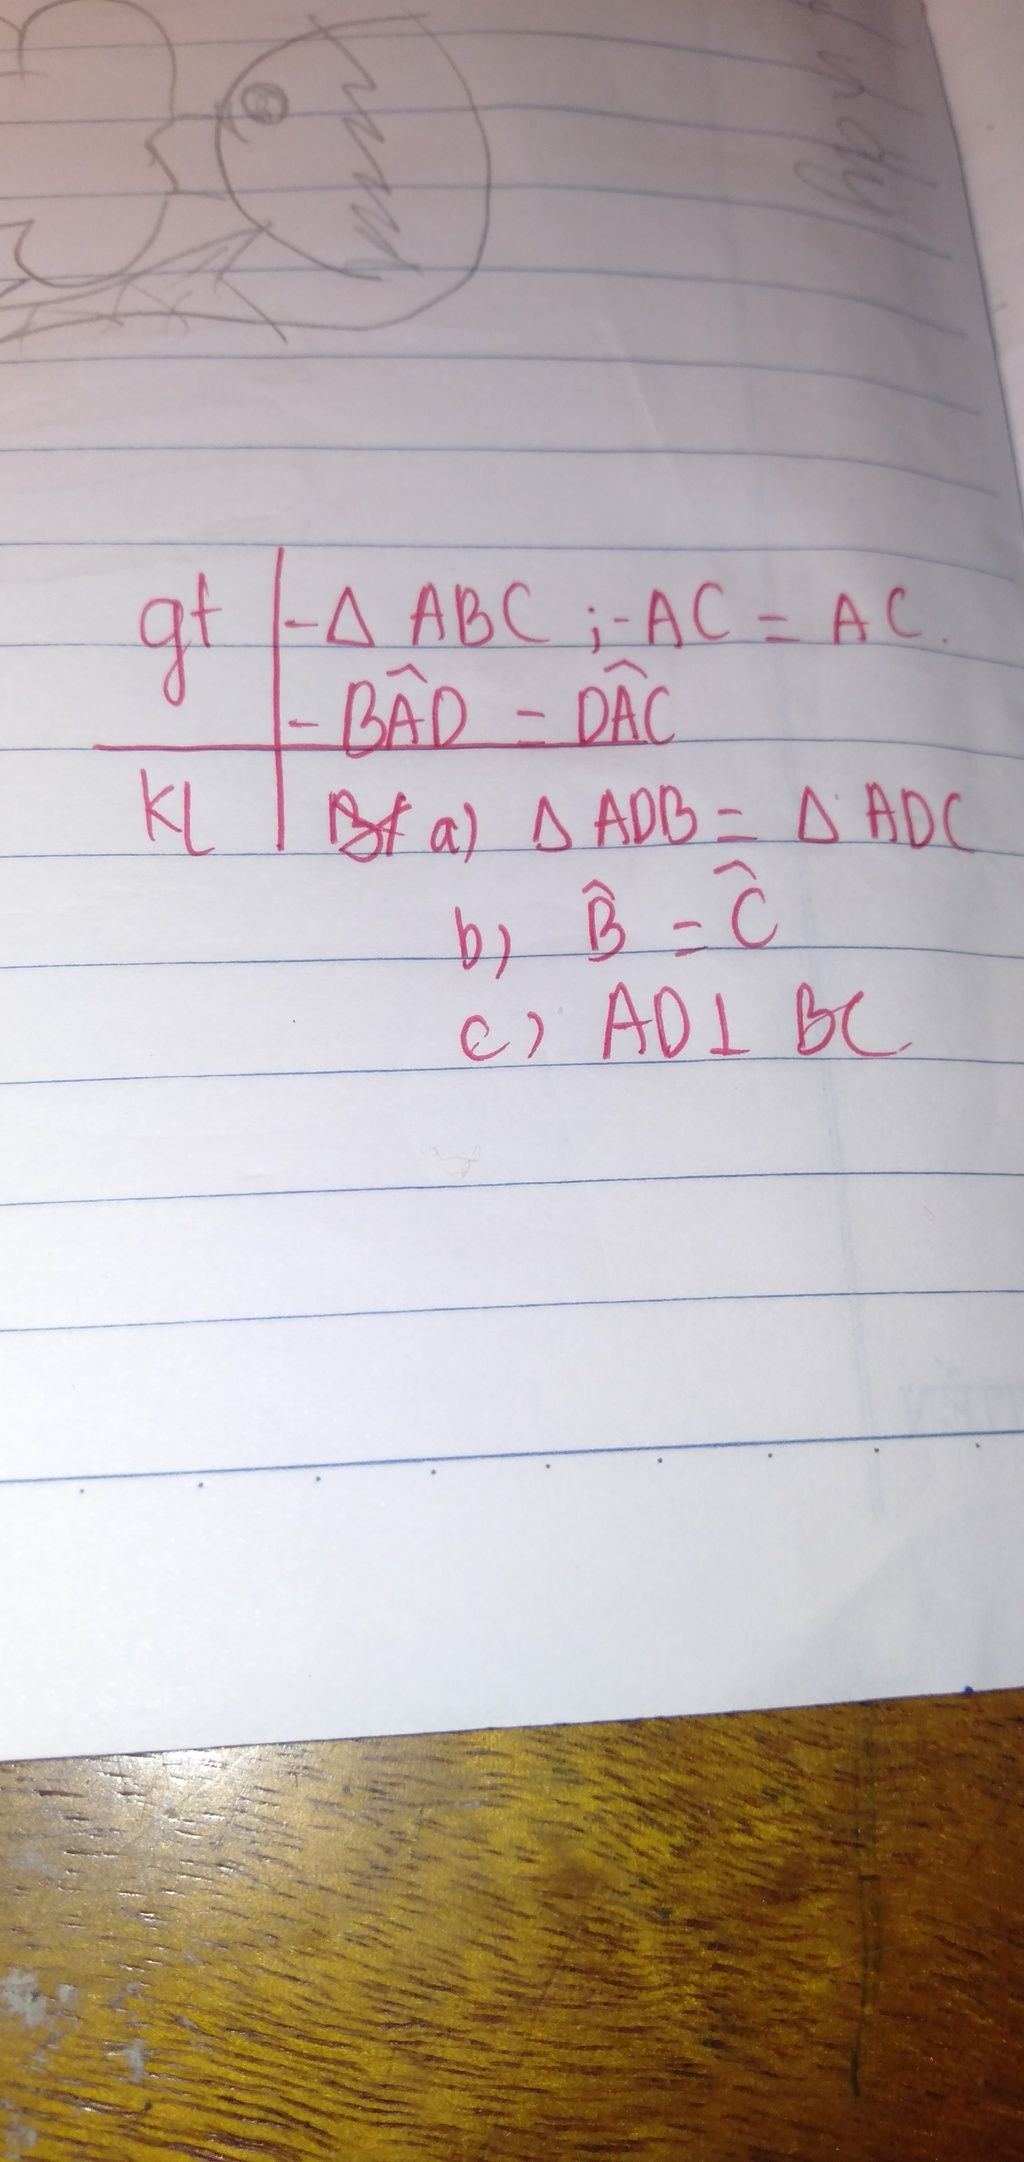 gt -∆ ABC ; -AC = AC.
- BÂD = DÂC
KL a) ∆ ADB = ∆ ADC
b) B̂ = Ĉ
c) AD ⊥ BC